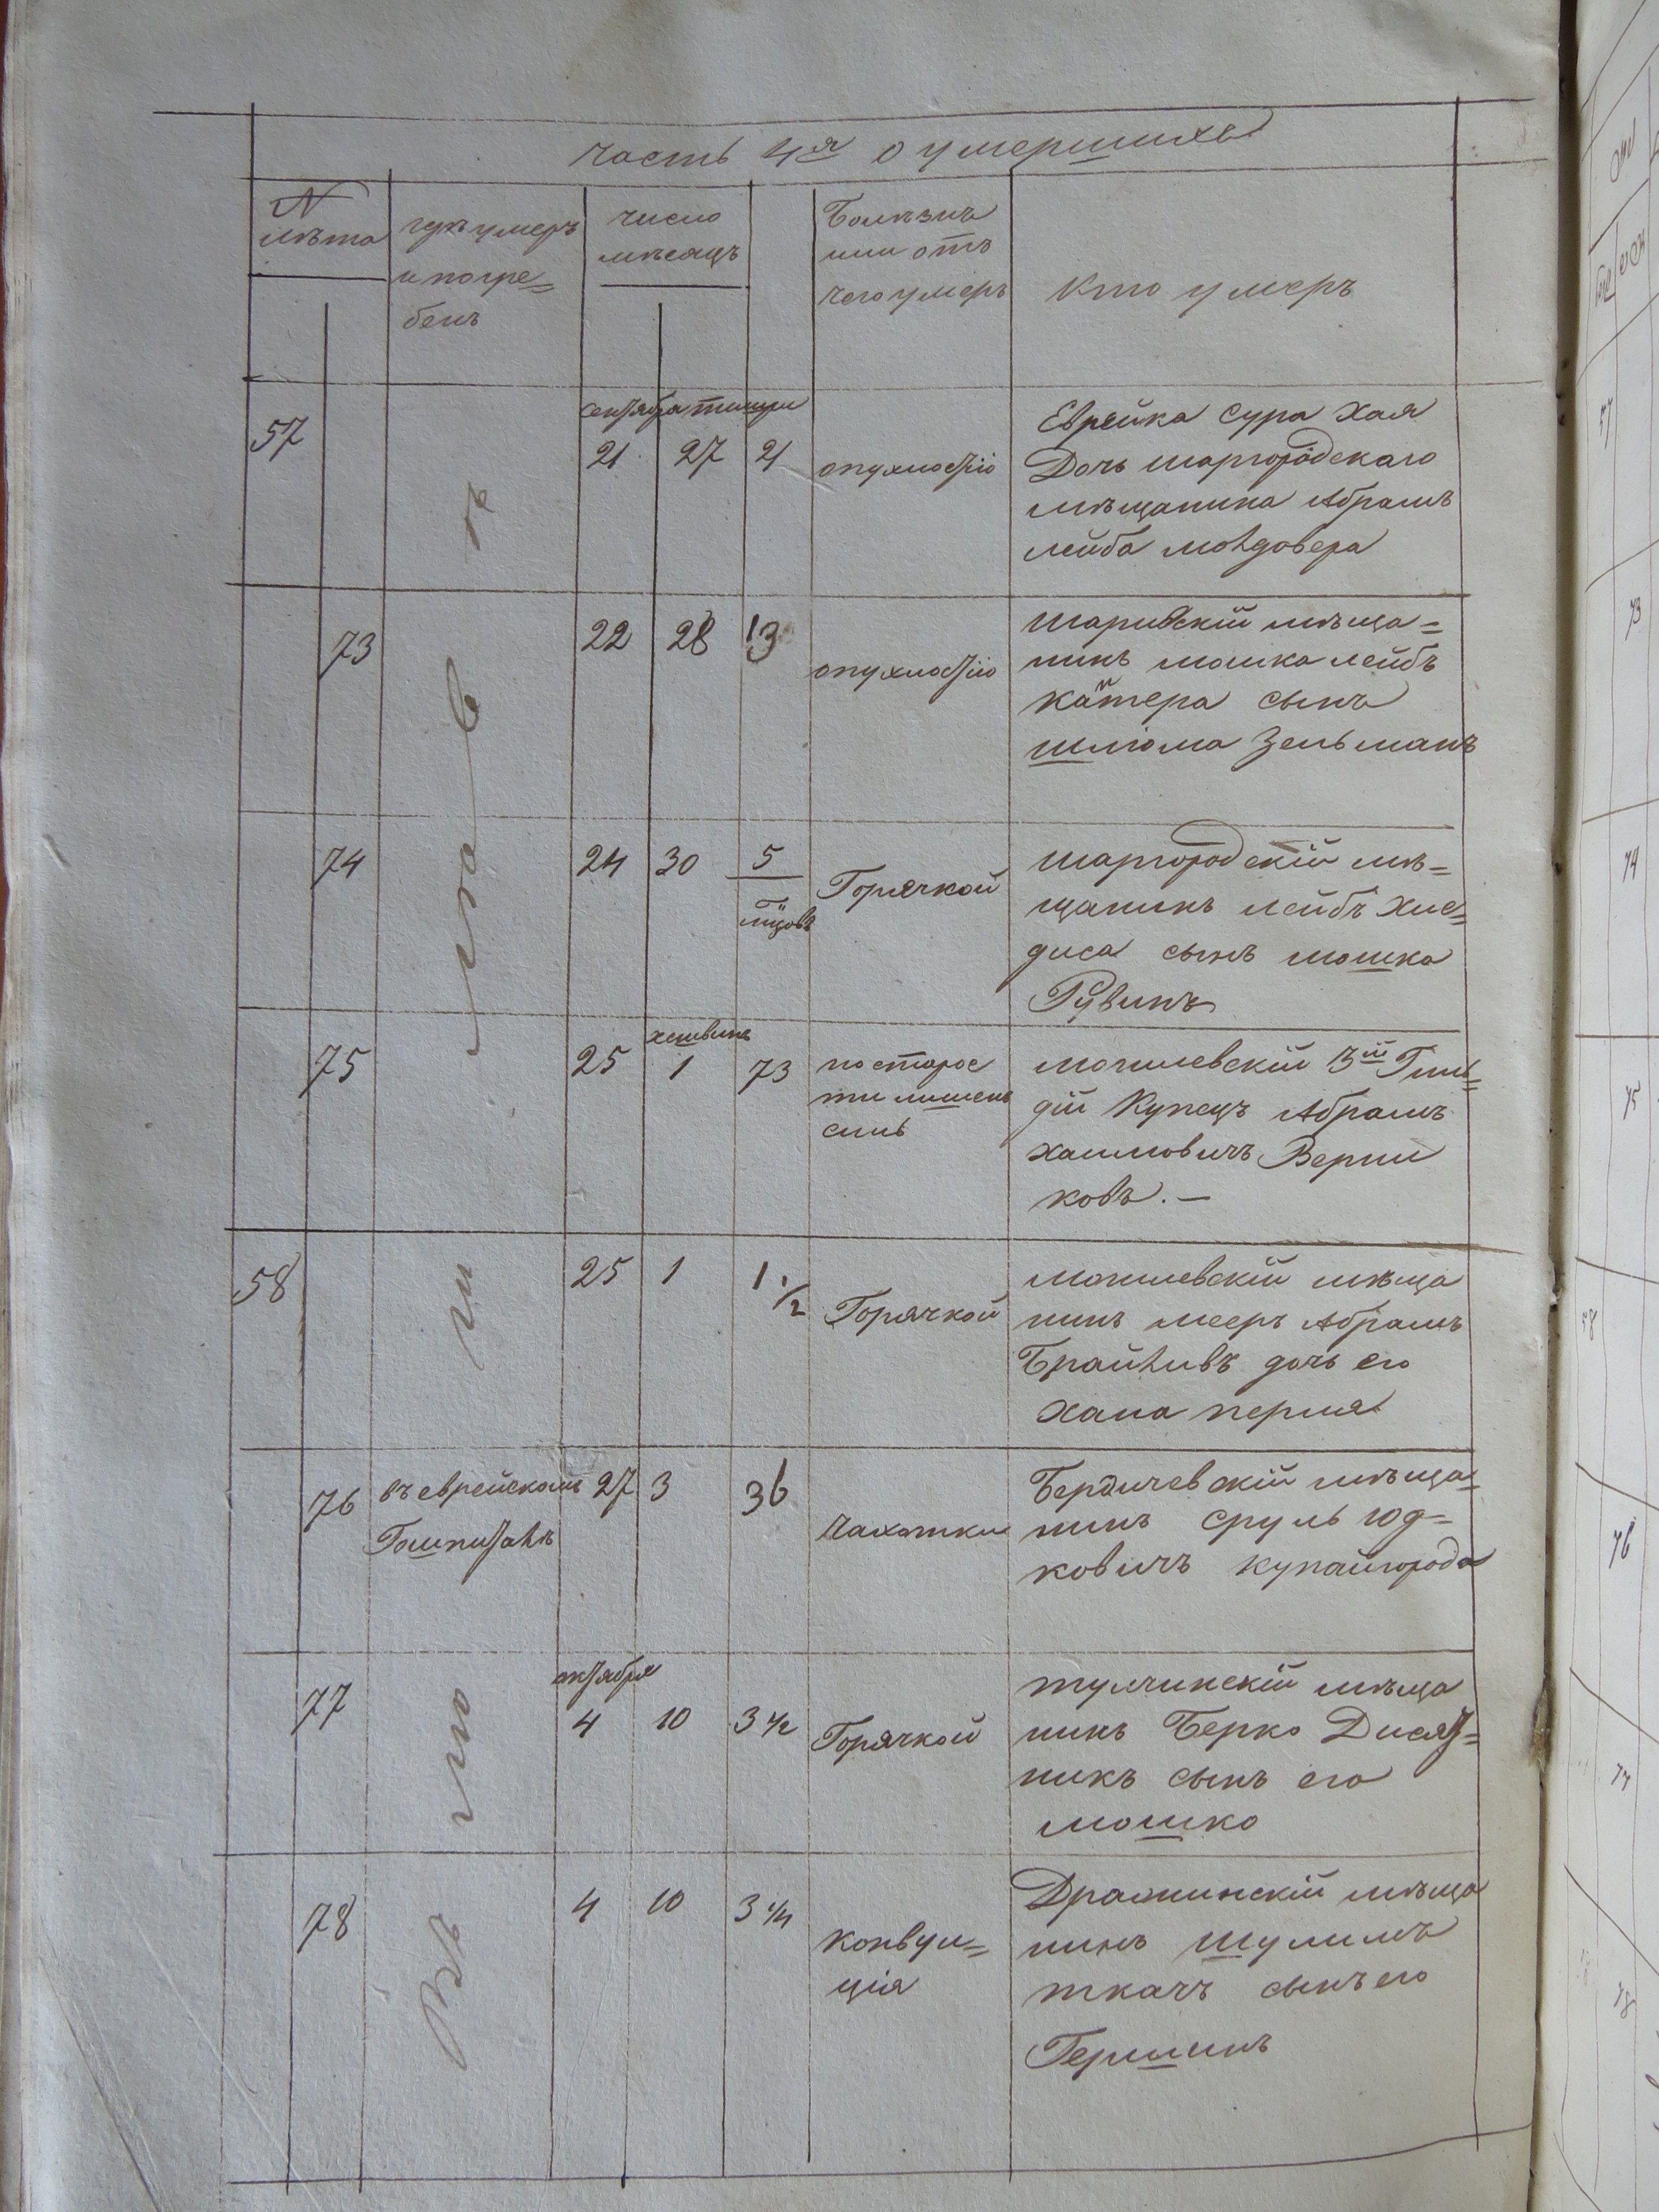 Часть 4я о умершихъ
N
лѣта
гдѣ умеръ
и погре=
бенъ
число
мѣсяцъ
Болѣзнь
или отъ
чего умеръ
Кто умеръ
Въ Могилевѣ
57
сентября тишри
21 27 2
опухлостію
Еврейка Сура Хая
Дочь шаргородскаго
мѣщанина Абрамъ
лейба
73
22 28 13
опухлостію
мѣща=
нинъ мошка лейбъ
сынъ
шліома Зельманъ
74
24 30 5
Горячкой
шаргородскій мѣ=
щанинъ лейбъ Хис=
диса сынъ мошка
Рувинъ
75
25
хешвинъ
1 73
по старос
ти лишенъ
силъ
могилевскій 3ій Гиль=
дій Купецъ Абрамъ
хаимовичъ Верли
ковъ. —
58
25 1 1 1/2
Горячкой
могилевскій мѣща
нинъ мееръ Абрамъ
дочь его
хана перля
76
въ еврейскомъ
Гошпиталѣ
27 3 36
Чахотки
Бердичевскій мѣща=
нинъ сруль юд=
ковичъ купайгорода
77
октября
4 10 3 1/2
Горячкой
тулчинскій мѣща
нинъ Берко Дисят=
никъ сынъ его
мошко
78
4 10 3 1/4
конвул=
ція
мѣща
нинъ шулимъ
ткачъ сынъ его
Гершинъ
57
73
74
75
58
76
77
78